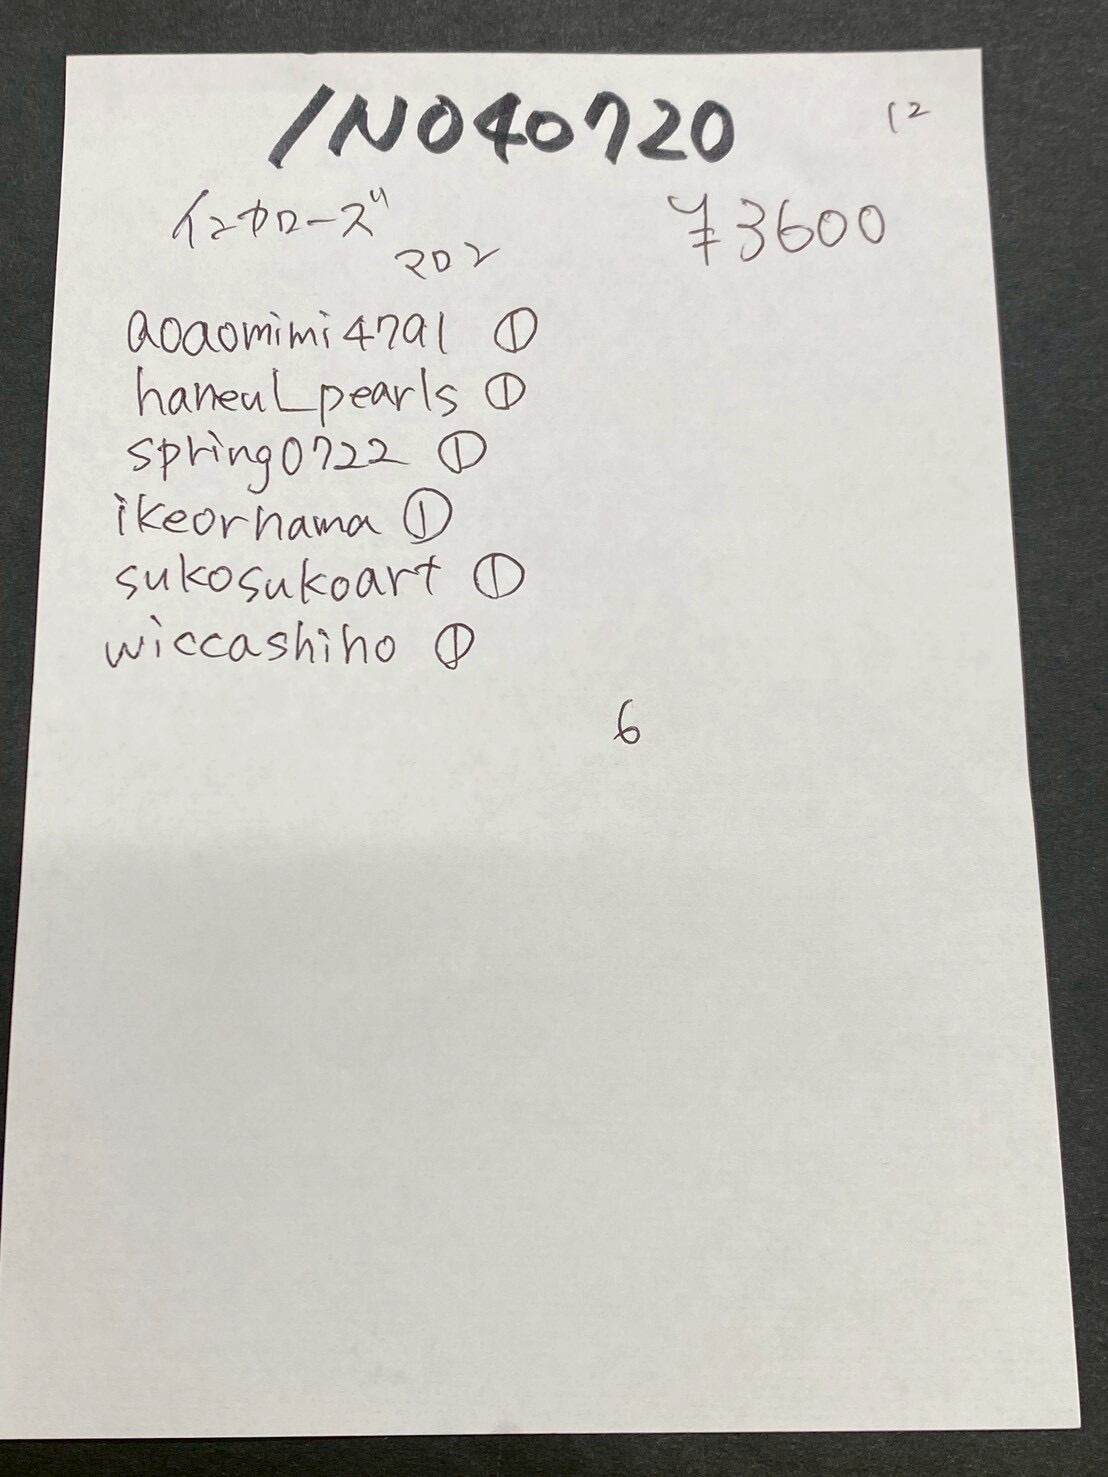 INO40720
12
インカローズ
マロン
¥3600
aoaomimi4791 ①
haneul_pearls ①
spring0722 ①
ikeornama ①
sukosukoart ①
wiccashiho ①
6